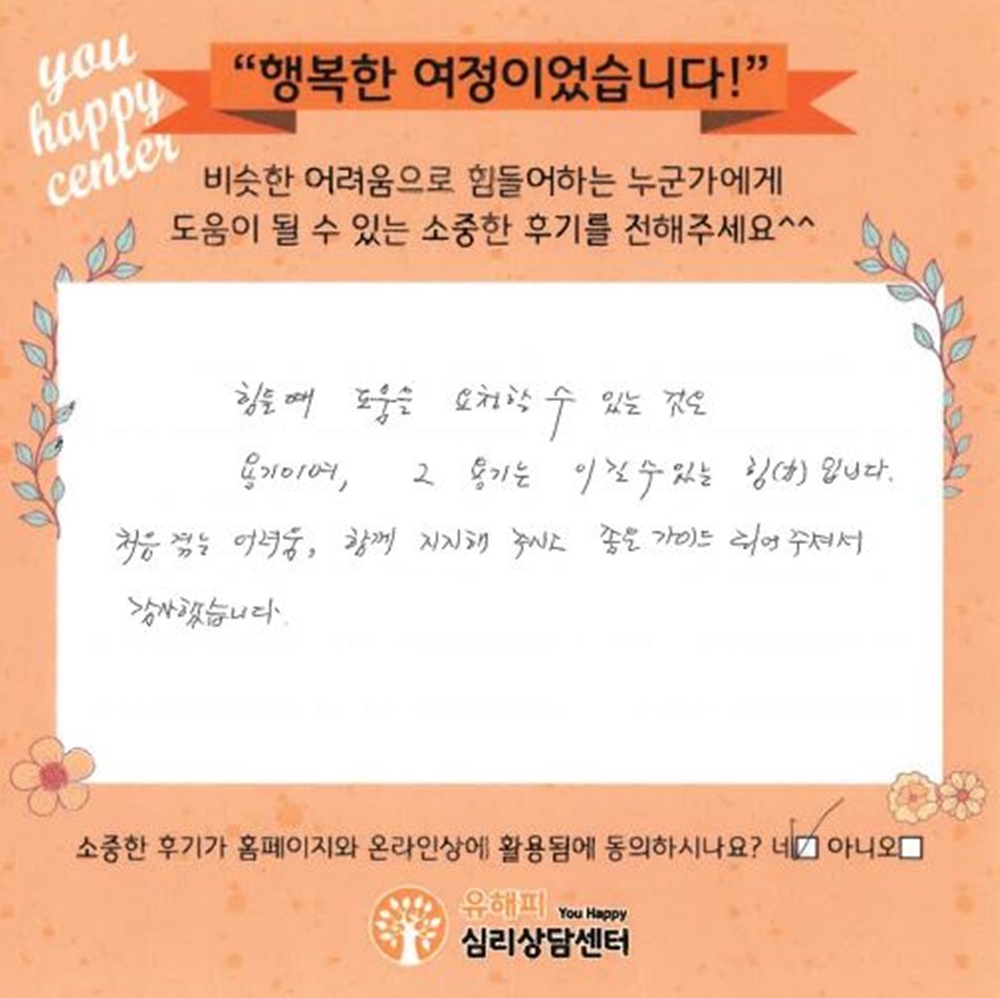 you
happy
center
“행복한 여정이었습니다!”
비슷한 어려움으로 힘들어하는 누군가에게
도움이 될 수 있는 소중한 후기를 전해주세요^^
힘들때 도움을 요청할 수 있는 것은
용기이며, 그 용기는 이길 수 있는 힘(力)입니다.
처음 겪는 어려움, 함께 지지해 주시고 좋은 가이드 되어 주셔서
감사했습니다.
소중한 후기가 홈페이지와 온라인상에 활용됨에 동의하시나요? 네 아니오
유해피 You Happy
심리상담센터